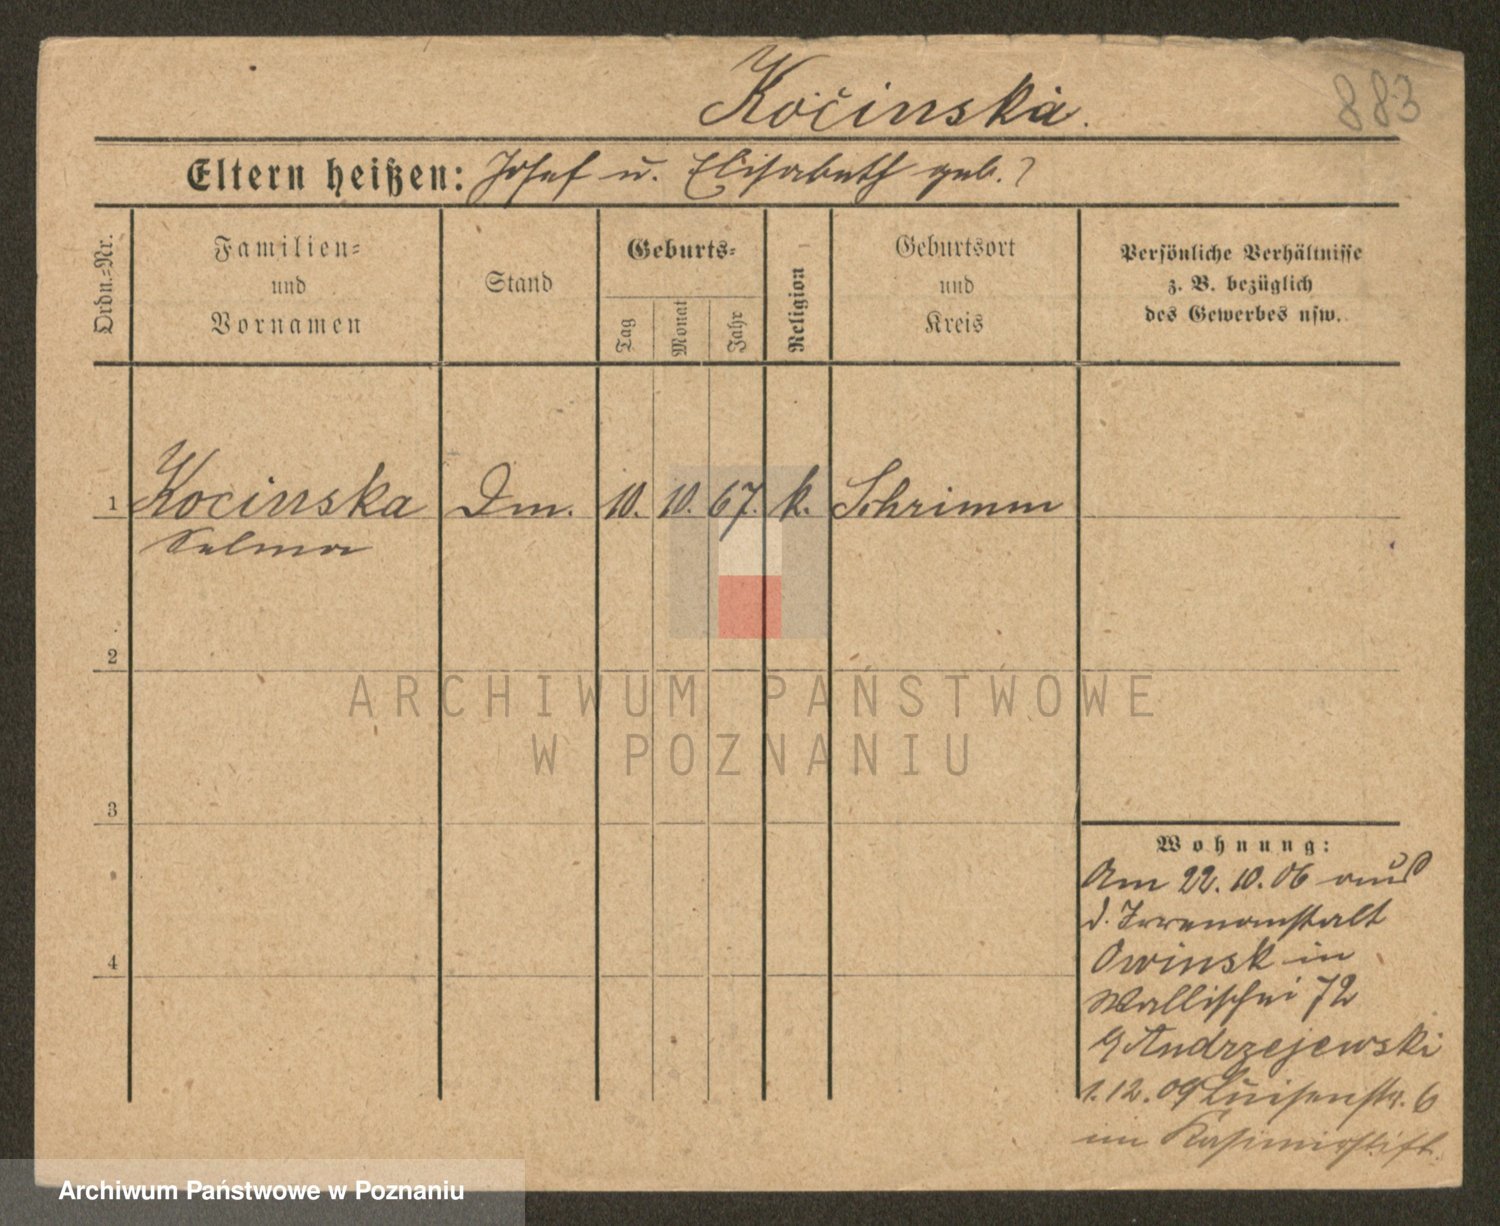 Kočinska.
883
Eltern heißen: Josef u. Elisabeth geb. ?
Ordn.=Nr.
Familien=
und
Vornamen
Stand
Geburts=
Tag
Monat
Jahr
Religion
Geburtsort
und
Kreis
Persönliche Verhältnisse
z. B. bezüglich
des Gewerbes usw.
1 Kocinska Dm. 10. 10. 67. k. Schrimm
Selma
2
3
4
Wohnung:
Am 22.10.06 aus
d. Irrenanstalt
Owinsk in
Wallischei 72
Andrzejewski
1.12.09 Luisenstr. 6
im Kasimirstift.
ARCHIWUM PAŃSTWOWE
W POZNANIU
Archiwum Państwowe w Poznaniu